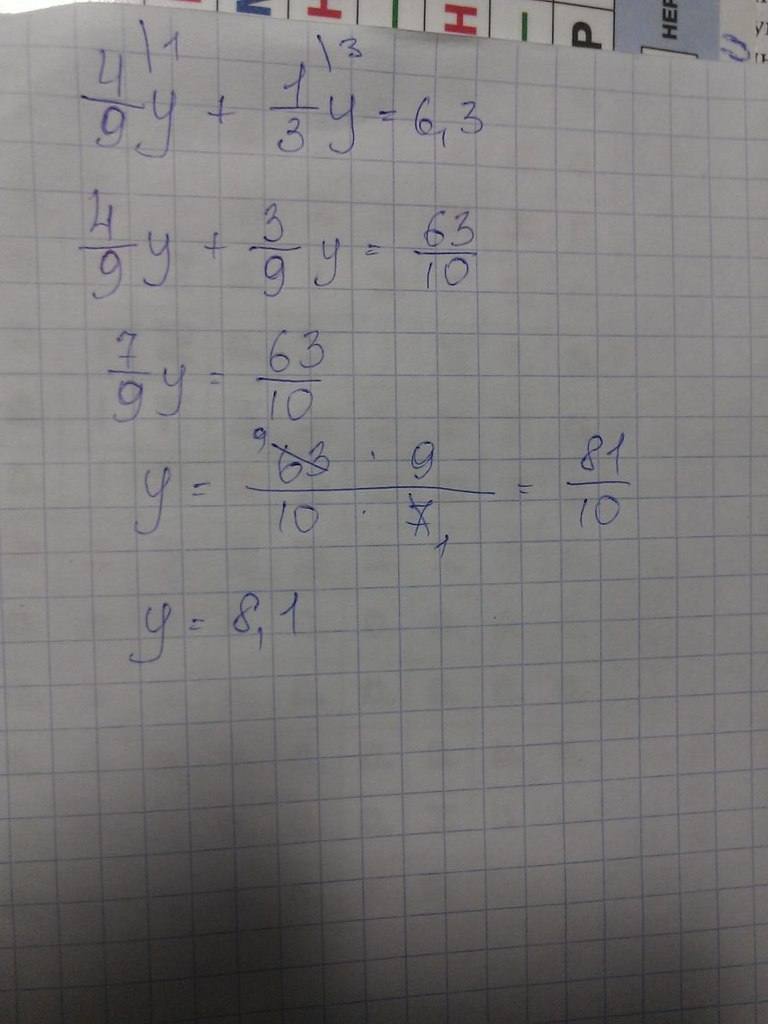 Н Н Р НЕР
4/9 \1 y + 1/3 \3 y = 6,3
4/9 y + 3/9 y = 63/10
7/9 y = 63/10
y = 9 63 · 9 / 10 · 7 1 = 81/10
y = 8,1